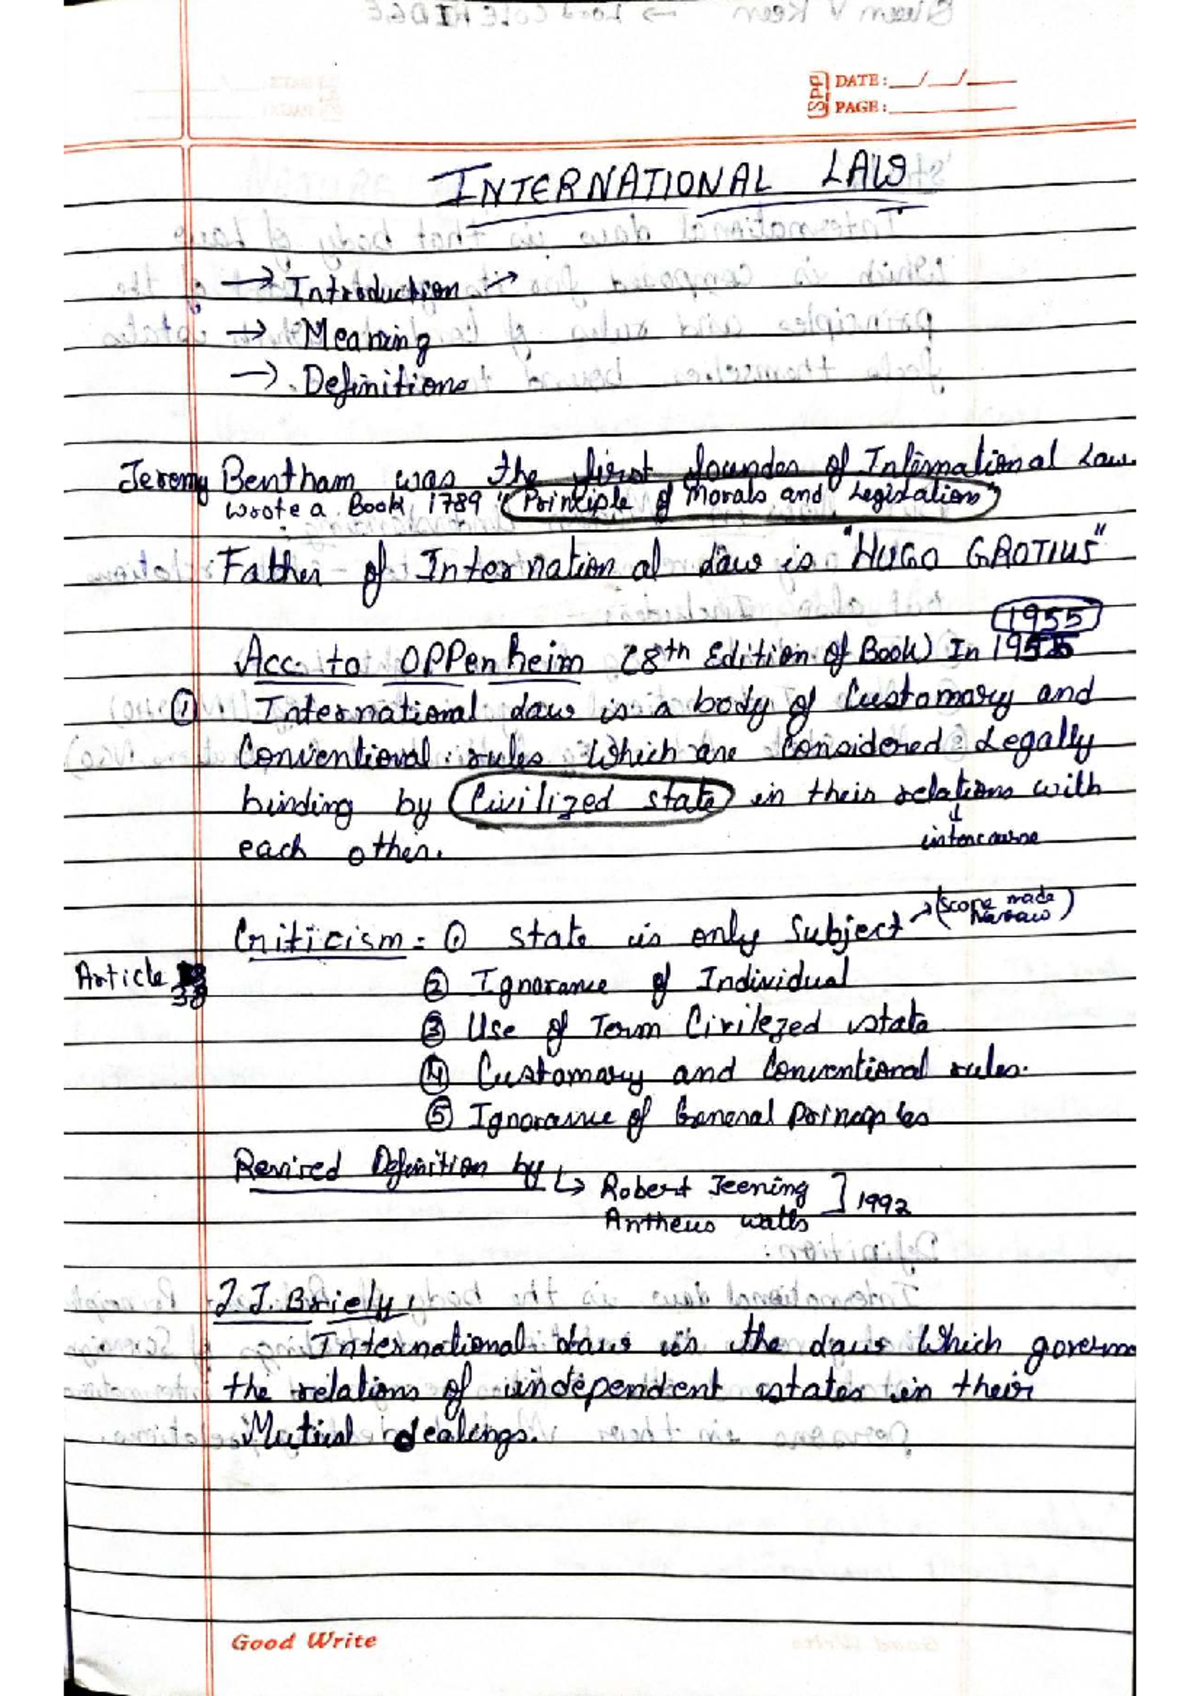 Spp DATE: __/__/____
PAGE: ________
INTERNATIONAL LAW
→ Introduction →
→ Meaning
→ Definitions
Jeremy Bentham was the first founder of International Law.
wrote a Book 1789 "Principle of Morals and Legislation"
Father of International Law is "HUGO GROTIUS"
1955
Acc. to OPPenheim (8th Edition of Book) In 1955
① International Law is a body of Customary and
Conventional rules Which are Considered Legally
binding by Civilized state in their relations with
each other. ↓ intercourse
Criticism = ① State is only Subject → (Scope made Narrow)
Article 38
② Ignorance of Individual
③ Use of Term Civilezed state
④ Customary and Conventional rules.
⑤ Ignorance of General Principles
Revised Definition by ↳ Robert Jeening ] 1992
Antheus watts
J.J. Briely :
International Law is the Law Which governs
the relations of independent states in their
Mutual dealings.
Good Write